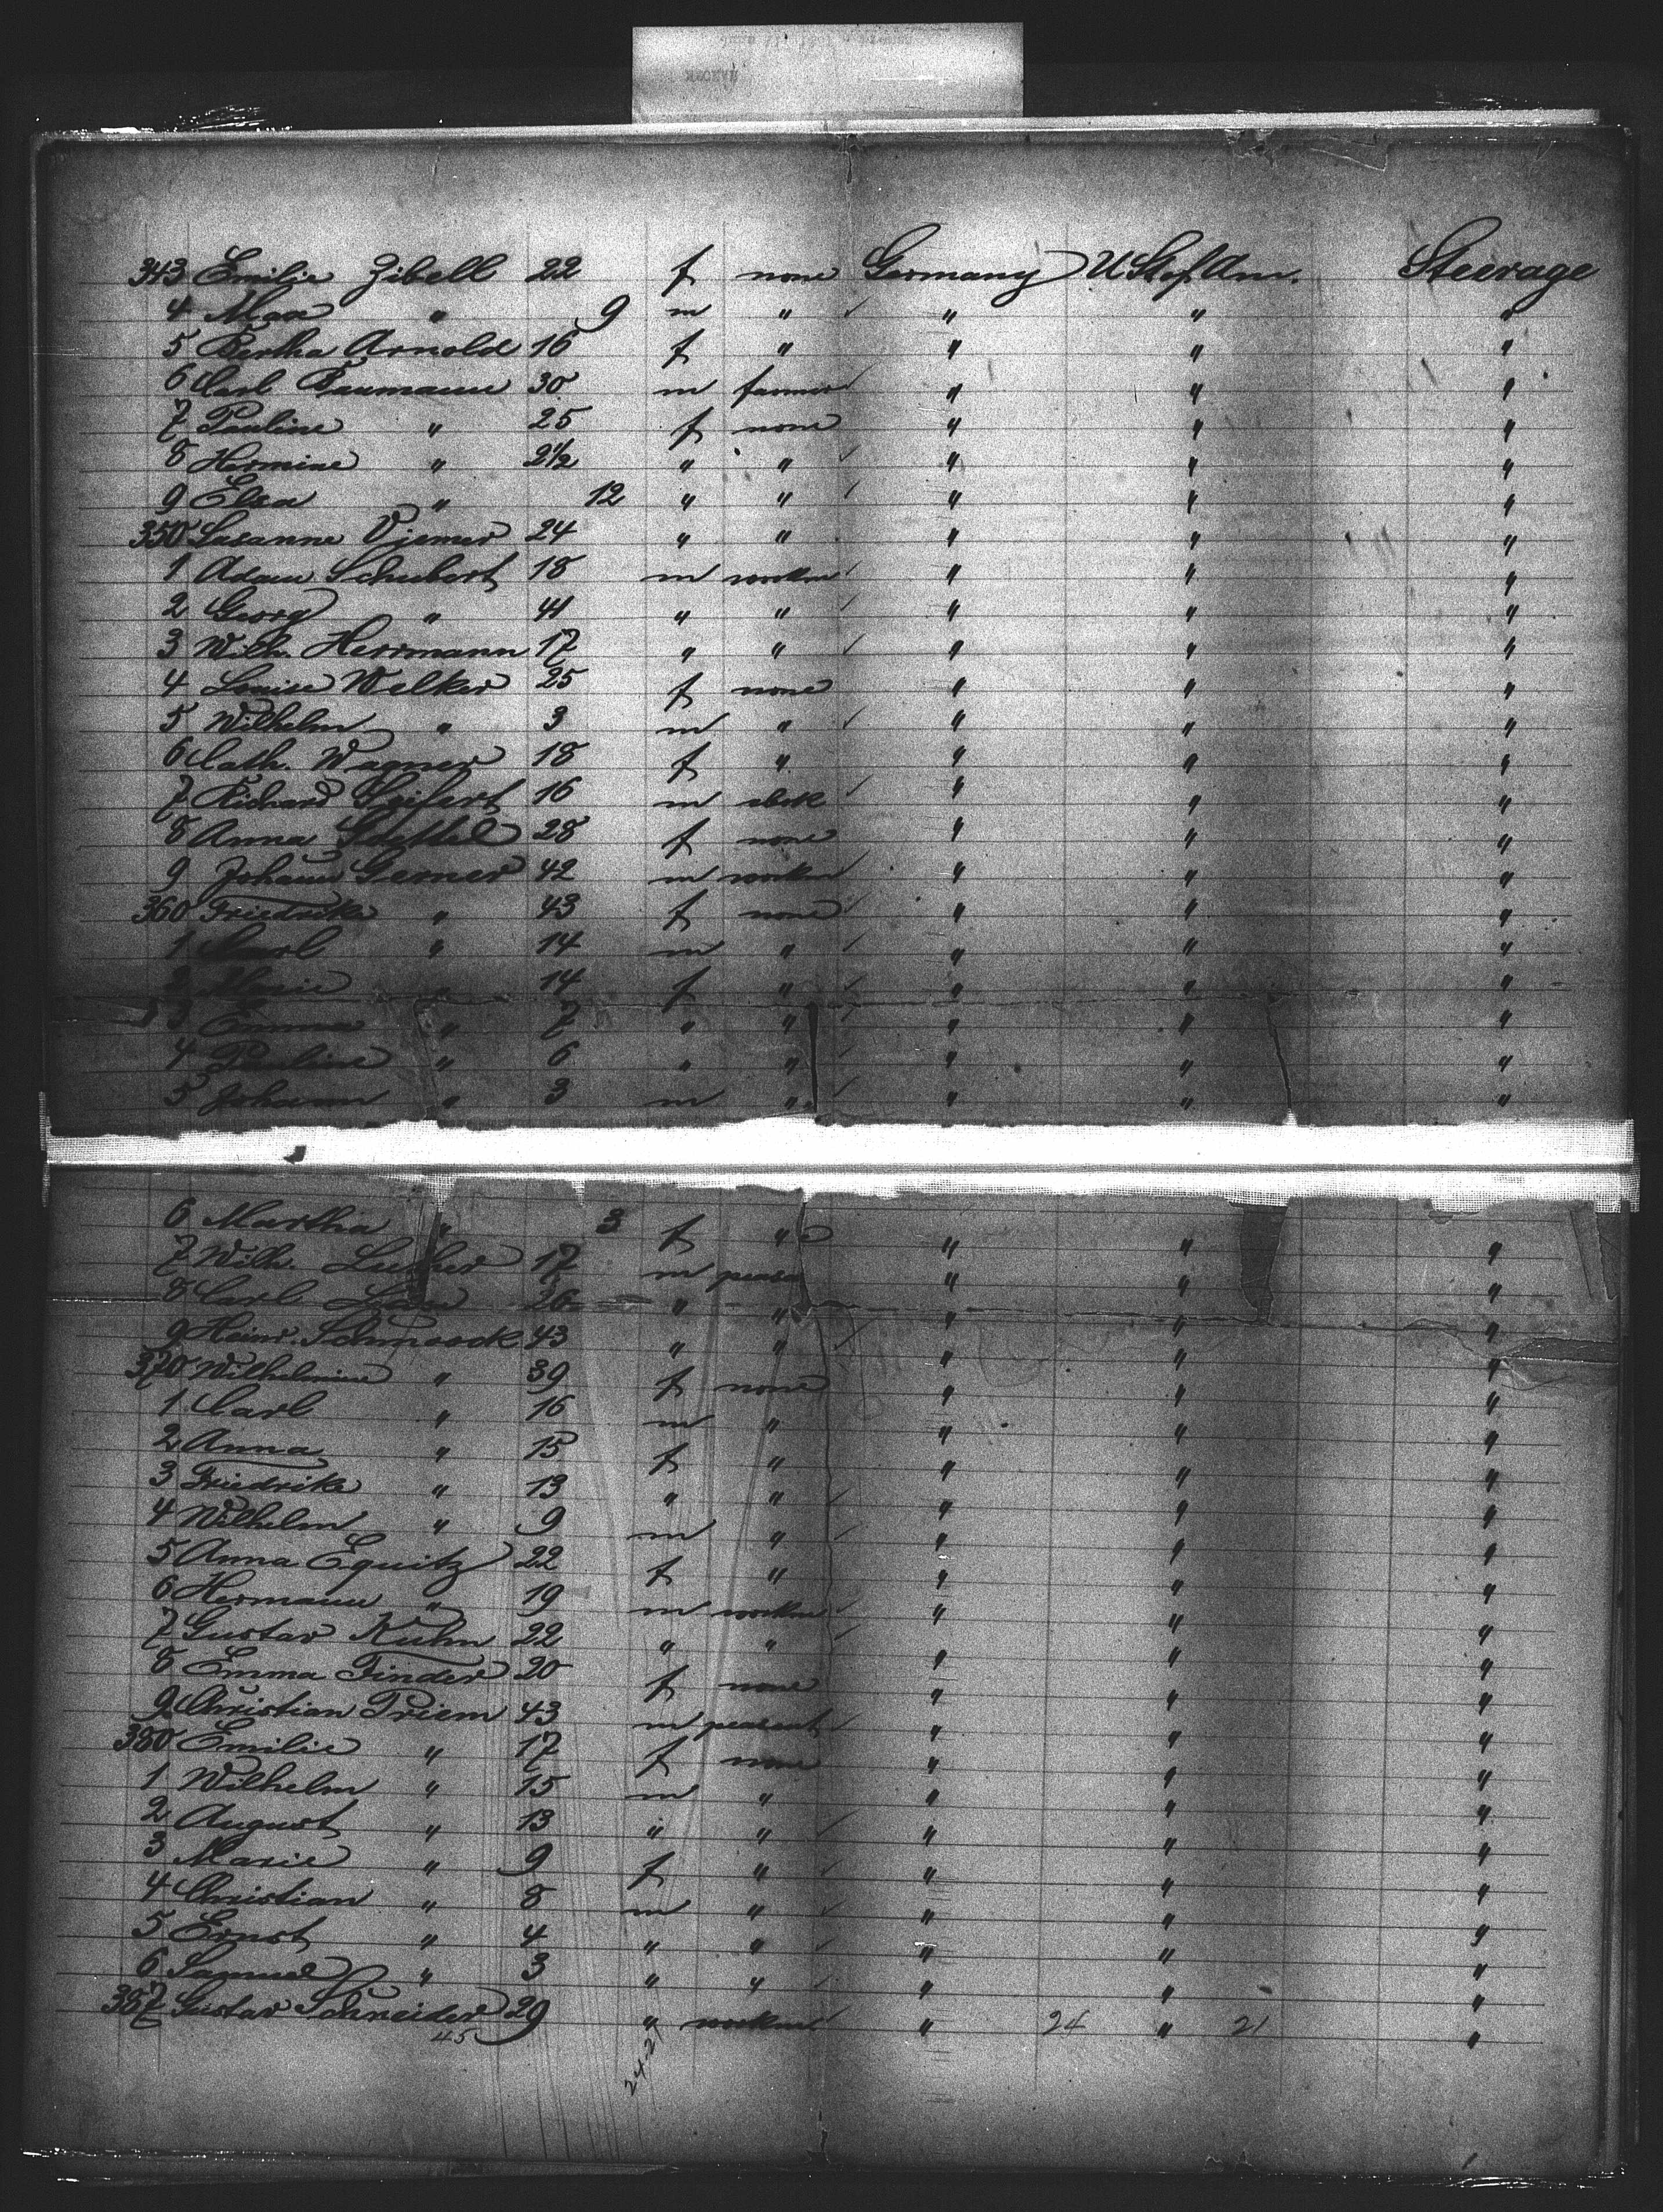 343 Emilie Zibell 22 f none Germany U.St.of Am. Steerage
4 Max " 9 m " " " "
5 Bertha Arnold 16 f " " " "
6 Carl Baumann 30 m farmer " " "
7 Pauline " 25 f none " " "
8 Hermine " 2½ " " " " "
9 Elsa " 12 " " " " "
350 Susanne 24 " " " " "
1 Adam Schubert 18 m workm " " "
2 Georg " 44 " " " " "
3 Wilh. Herrmann 17 " " " " "
4 Louise Welker 25 f none " " "
5 Wilhelm " 3 m " " " "
6 Cath. Wagner 18 f " " " "
7 Richard Seifert 16 m " " "
8 Anna 28 f none " " "
9 Johann Gerner 42 m workm " " "
360 Friedrike " 43 f none " " "
1 Carl " 14 m " " " "
2 Marie " 14 f " " " "
3 Emma " 7 " " " " "
4 Pauline " 6 " " " " "
5 Johann " 3 m " " " "
6 Martha " 3 f " " " "
7 Wilh. 17 m peasa " " "
8 Carl 26 " " " " "
9 Heinr. Schmoock 43 " " " " "
370 Wilhelmine " 39 f none " " "
1 Carl " 16 m " " " "
2 Anna " 15 f " " " "
3 Friedrike " 13 " " " " "
4 Wilhelm " 9 m " " " "
5 Anna Equitz 22 f " " " "
6 Hermann " 19 m workm " " "
7 Gustav Kuhn 22 " " " " "
8 Emma Finder 20 f none " " "
9 Christian Priem 43 m peasant " " "
380 Emilie " 17 f none " " "
1 Wilhelm " 15 m " " " "
2 August " 13 " " " " "
3 Marie " 9 f " " " "
4 Christian " 8 m " " " "
5 Ernst " 4 " " " " "
6 Samuel " 3 " " " " "
387 Gustav Schneider 29 " workm " 24 " 21 "
45
24-21